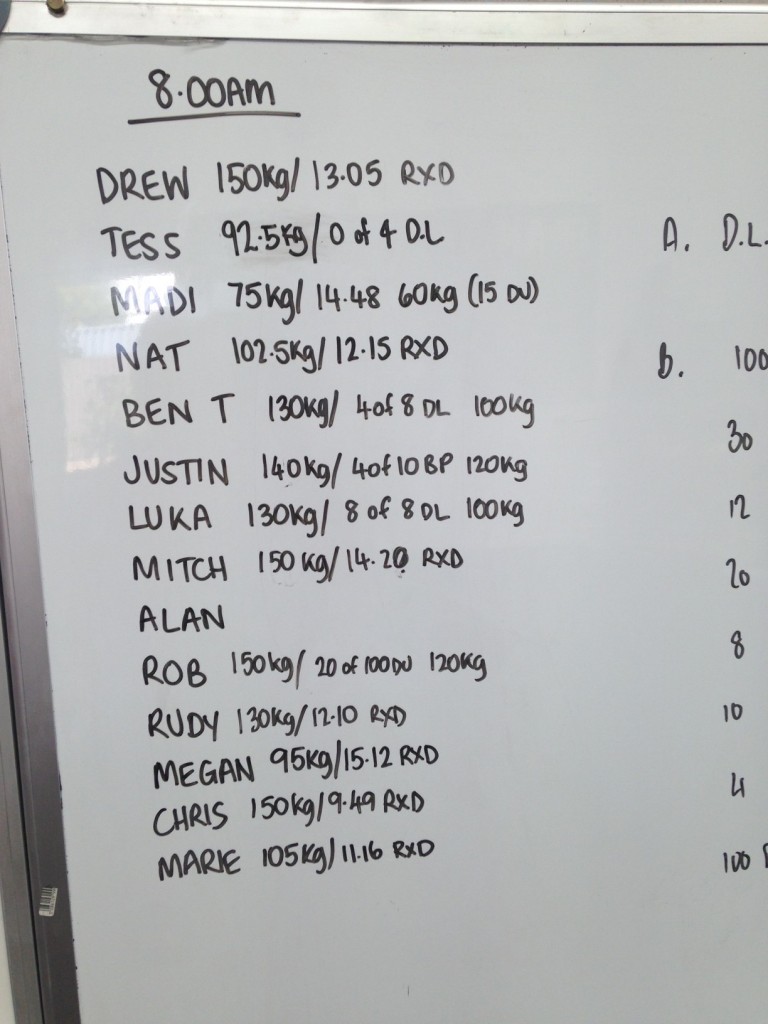 8.00AM
DREW 150kg/ 13.05 RXD
TESS 92.5kg/ 0 of 4 D.L
MADI 75kg/ 14.48 60kg (15 DU)
NAT 102.5kg/ 12.15 RXD
BEN T 130kg/ 4 of 8 DL 100kg
JUSTIN 140kg/ 4 of 10 BP 120kg
LUKA 130kg/ 8 of 8 DL 100kg
MITCH 150kg/ 14.20 RXD
ALAN
ROB 150kg/ 20 of 100 DU 120kg
RUDY 130kg/ 12.10 RXD
MEGAN 95kg/ 15.12 RXD
CHRIS 150kg/ 9.49 RXD
MARIE 105kg/ 11.16 RXD
A. D.L.
b. 100
30
12
20
8
10
4
100